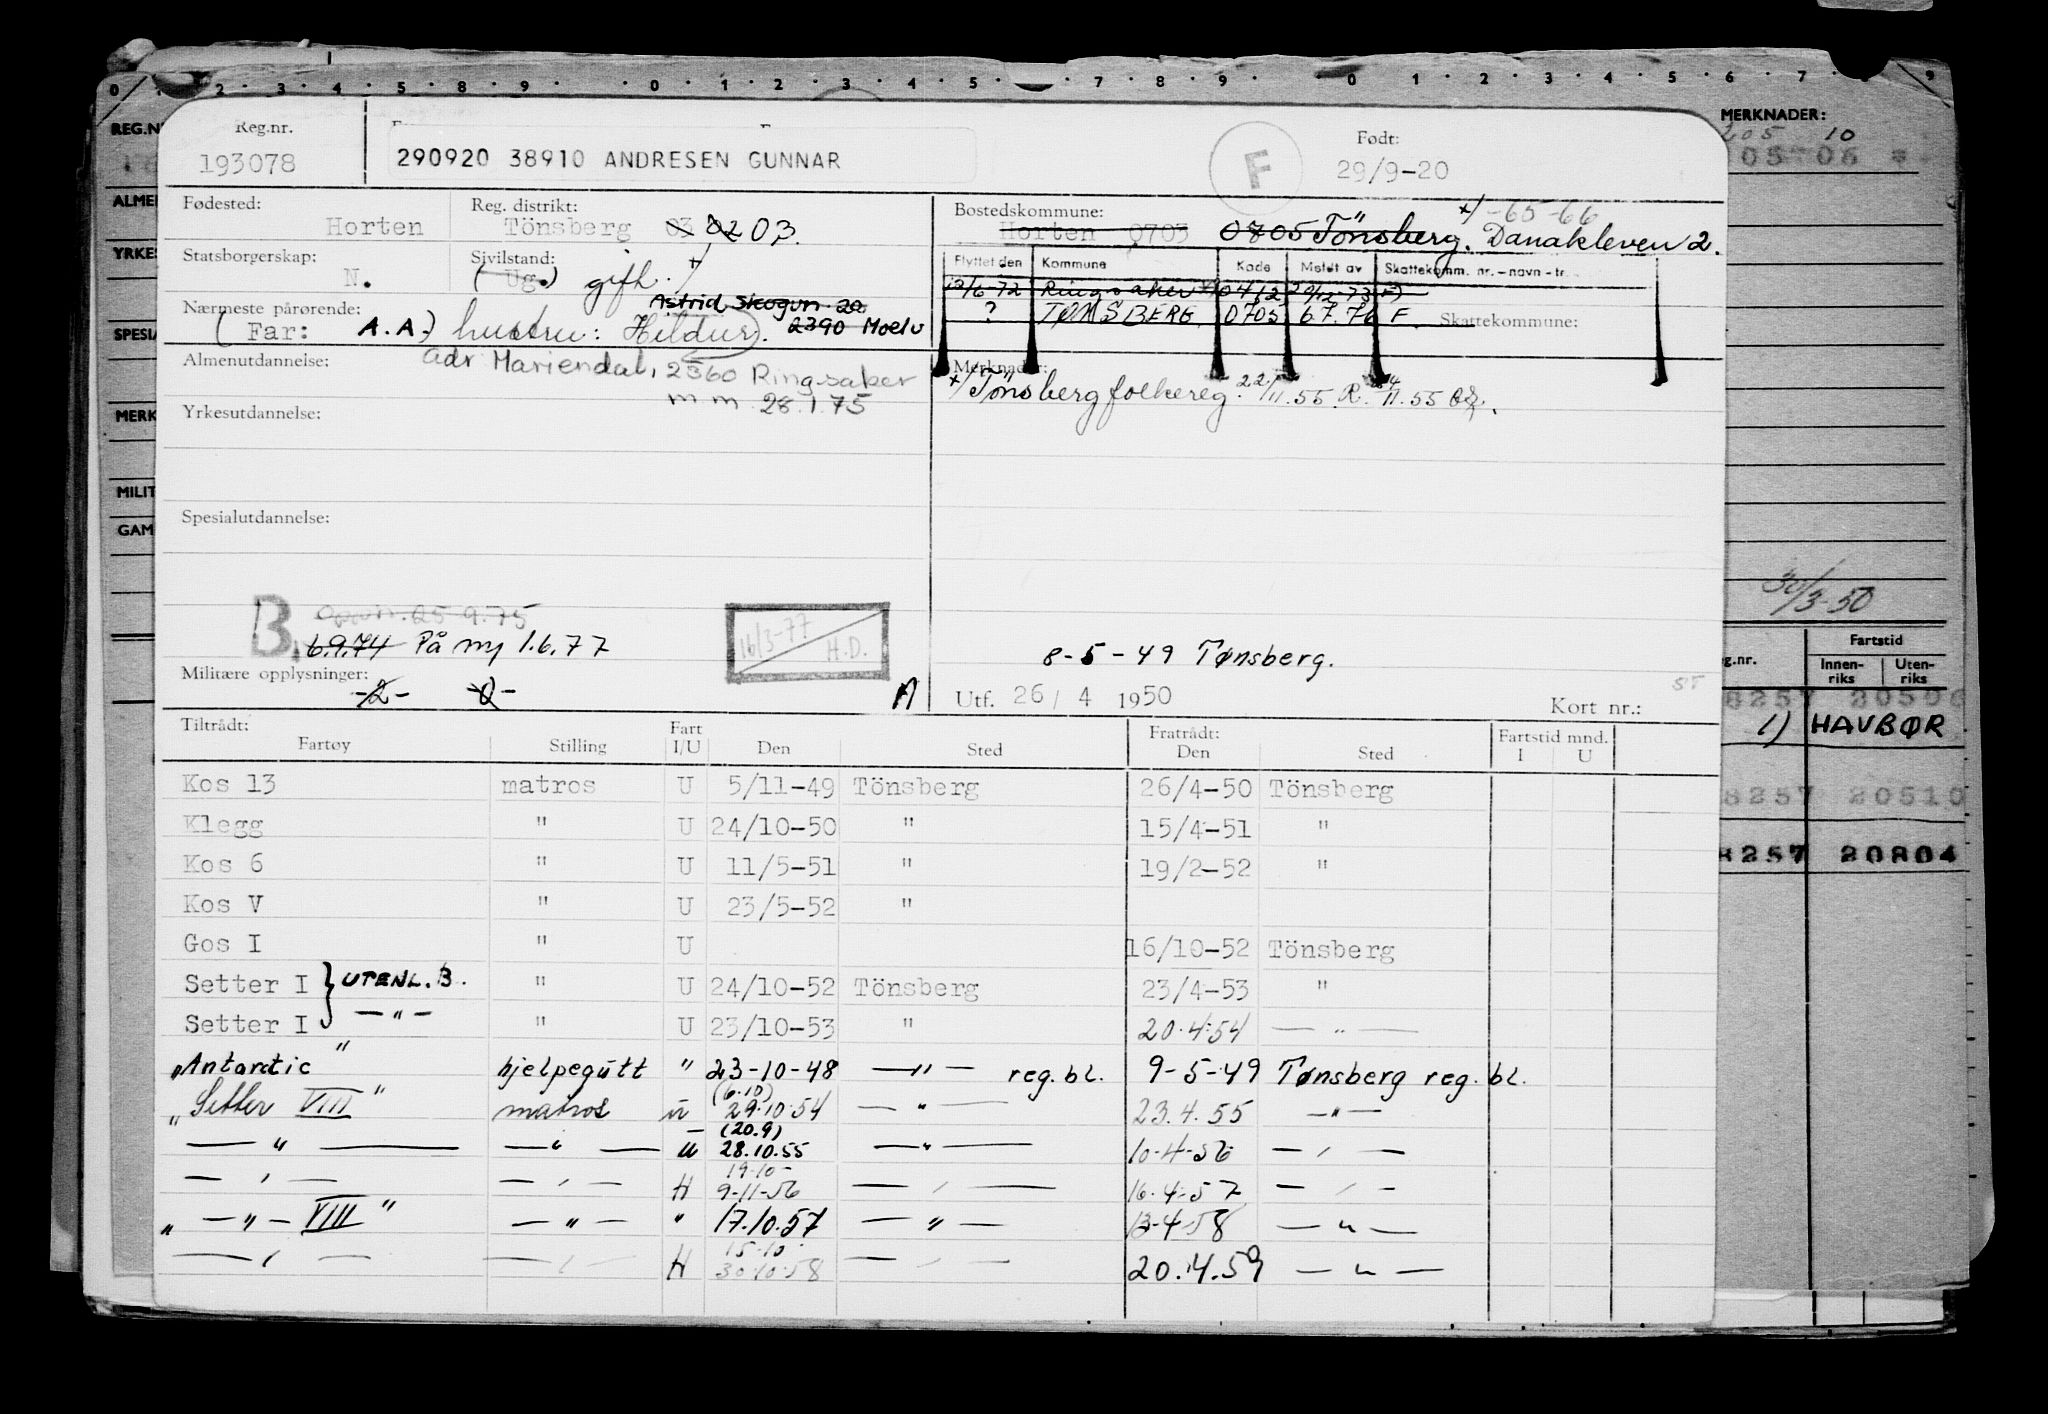 MERKNADER:
Reg.nr.
193078
290920 38910 ANDRESEN GUNNAR
F
Født:
29/9-20
Fødested:
Horten
Reg. distrikt:
Tönsberg 03 02 03.
Bostedskommune:
Horten 0703 0705 Tönsberg. Danakleven 2.
+/ -65-66
Statsborgerskap:
N.
Sivilstand:
(Ug.) gift. +/
Flyttet den Kommune Kode Meldt av Skattekomm. nr. - navn - tr.
12/6-72 Ringsaker 0412
? TØNSBERG 0705 6.7.76 F.
Skattekommune:
Nærmeste pårørende:
(Far: A.A.) hustru: Hildur).
Astrid Skogvn. 20
2390 Moelv
Almenutdannelse:
adr Mariendal, 2360 Ringsaker
m.m. 28.1.75
Merknader:
+/ Tönsberg folkereg. 22/11.55. R. 24/11.55
Yrkesutdannelse:
Spesialutdannelse:
B.
25.9.75
6.9.74 På ny 1.6.77
16/3-77
H.D.
8-5-49 Tønsberg.
Militære opplysninger:
-2- -0-
A
Utf. 26/ 4 1950
Kort nr.:
Tiltrådt:
Fartøy Stilling Fart I/U Den Sted Fratrådt: Den Sted Fartstid mnd. I U
Kos 13 matros U 5/11-49 Tönsberg 26/4-50 Tönsberg
Klegg " U 24/10-50 " 15/4-51 "
Kos 6 " U 11/5-51 " 19/2-52 "
Kos V " U 23/5-52 "
Gos I " U 16/10-52 Tönsberg
Setter I } UTENL. B. " U 24/10-52 Tönsberg 23/4-53 "
Setter I — " — " U 23/10-53 " 20.4.54 — " —
"Antarctic" hjelpegutt " 23-10-48 — " — reg. bl. 9-5-49 Tønsberg reg. bl.
"Setter VIII" matros U (6.10) 29.10.54 — " — 23.4.55 — " —
— " — — " — U (20.9) 28.10.55 — " — 10-4-56 — " —
— " — — " — H 19.10- 9-11-56 — " — 16.4.57 — " —
" — " — VIII " — " — " 17.10.57 — " — 13-4-58 — " —
— " — — " — H 15.10. 30.10.58 — " — 20.4.59 — " —
REG.N
ALME
YRKE
SPESI
MERK
MILIT
GAM
205 10
30/3-50
g.nr.
Fartstid
Innen-riks Uten-riks
8257
1) HAVBØR
8257 20510
8257 20804